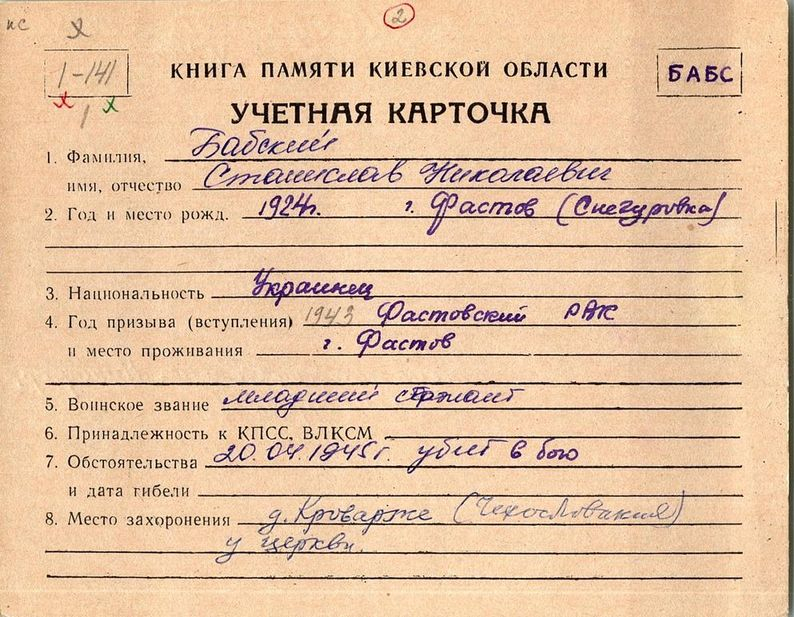 ПС х 2
1-141
КНИГА ПАМЯТИ КИЕВСКОЙ ОБЛАСТИ
БАБС
х 1 х
УЧЕТНАЯ КАРТОЧКА
1. Фамилия, Бабский
имя, отчество Станислав Николаевич
2. Год и место рожд. 1924г. г. Фастов (Снегуровка)
3. Национальность Украинец
4. Год призыва (вступления) 1943 Фастовский РВК
и место проживания г. Фастов
5. Воинское звание младший сержант
6. Принадлежность к КПСС, ВЛКСМ
7. Обстоятельства 20.04.1945г. убит в бою
и дата гибели
8. Место захоронения д. Кроварже (Чехословакия)
у церкви.